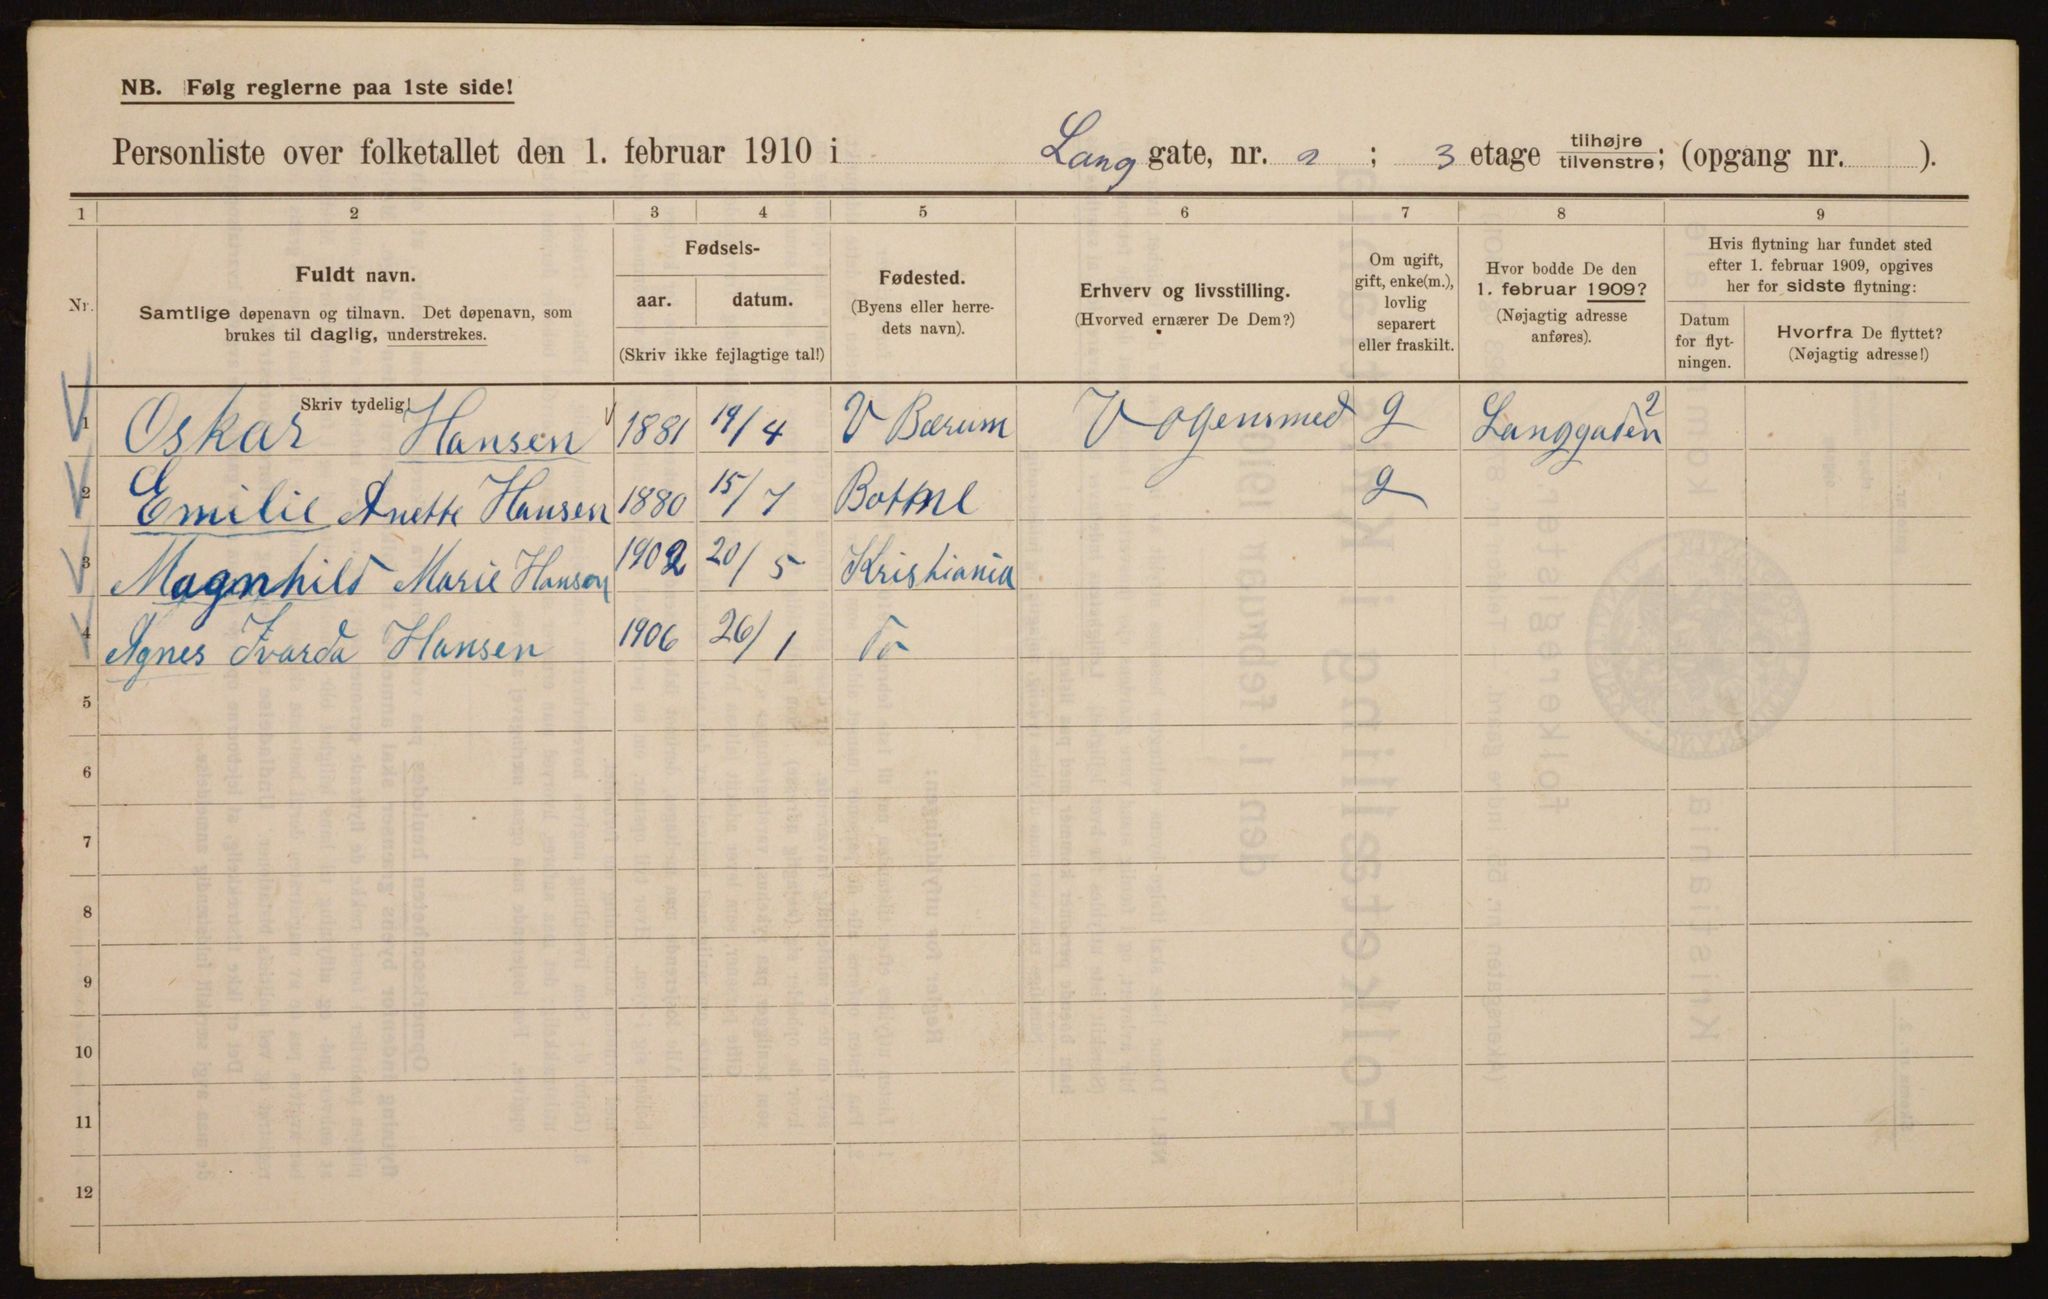 NB. Følg reglerne paa 1ste side!
Personliste over folketallet den 1. februar 1910 i Lang gate, nr. 2 ; 3 etage tilhøjre tilvenstre; (opgang nr. ).
1 2 3 4 5 6 7 8 9
Nr.
Fuldt navn.
Samtlige døpenavn og tilnavn. Det døpenavn, som
brukes til daglig, understrekes.
Fødsels-
aar. datum.
(Skriv ikke fejlagtige tal!)
Fødested.
(Byens eller herre-
dets navn).
Erhverv og livsstilling.
(Hvorved ernærer De Dem?)
Om ugift,
gift, enke(m.),
lovlig
separert
eller fraskilt.
Hvor bodde De den
1. februar 1909?
(Nøjagtig adresse
anføres).
Hvis flytning har fundet sted
efter 1. februar 1909, opgives
her for sidste flytning:
Datum
for flyt-
ningen.
Hvorfra De flyttet?
(Nøjagtig adresse!)
Skriv tydelig!
1 Oskar Hansen 1881 19/4 V Bærum Vognsmed g Langgaden 2
2 Emilie Anette Hansen 1880 15/7 g
3 Magnhild Marie Hansen 1902 20/5 Kristiania
4 Agnes Ivarda Hansen 1906 26/1 Do
5
6
7
8
9
10
11
12